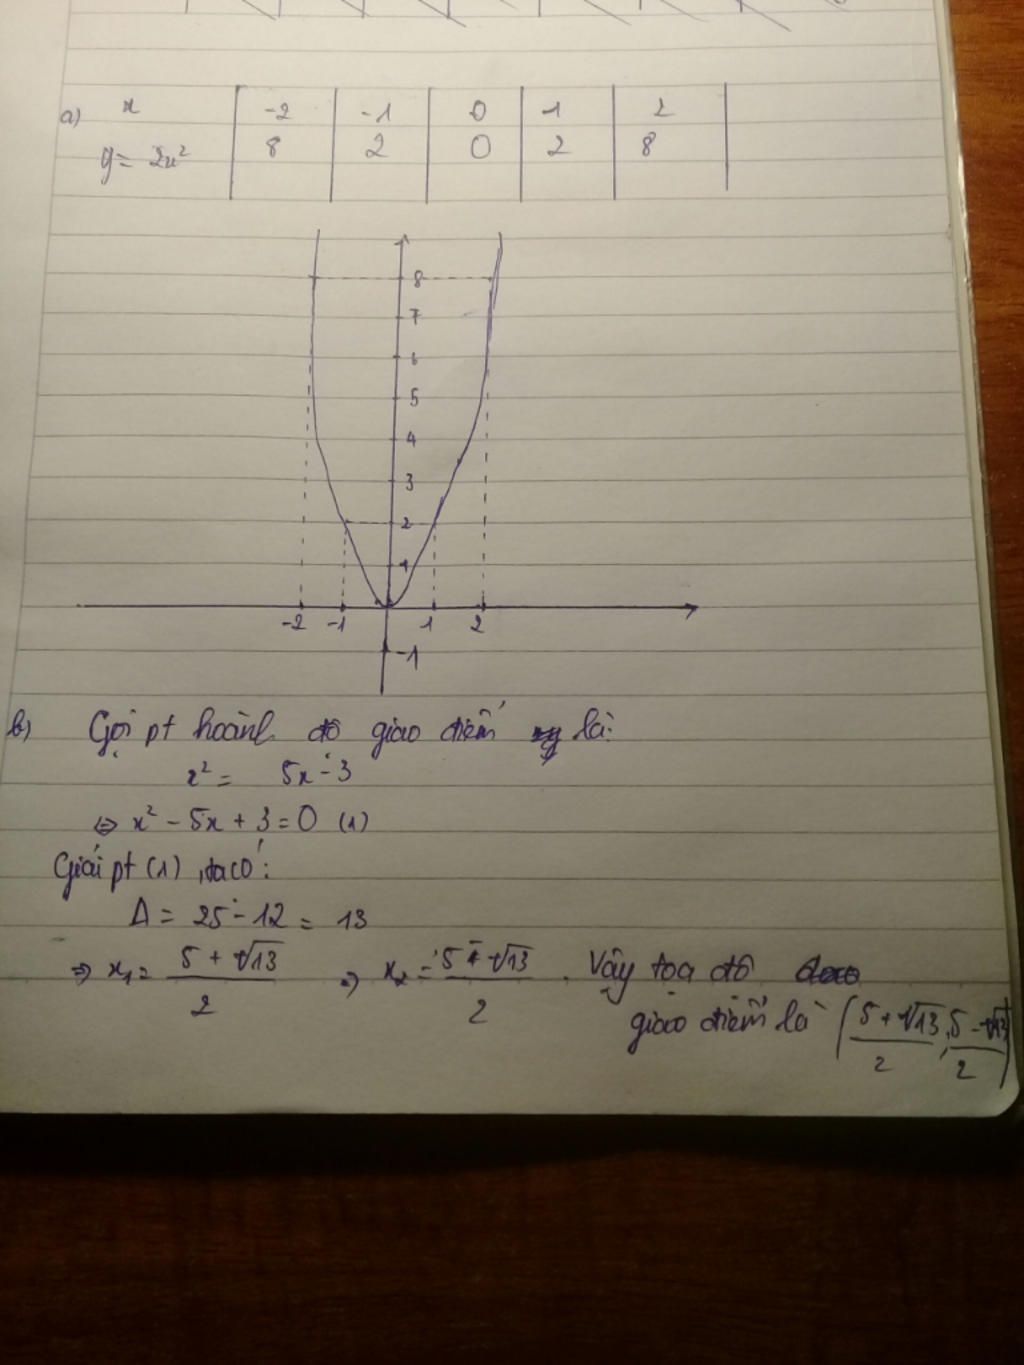 a) x -2 -1 0 1 2
y = 2x² 8 2 0 2 8
8
7
6
5
4
3
2
1
-2 -1 1 2
-1
b) Gọi pt hoành độ giao điểm là:
x² = 5x - 3
⇔ x² - 5x + 3 = 0 (1)
Giải pt (1), ta có:
Δ = 25 - 12 = 13
⇒ x₁ = (5 + √13)/2 ⇒ x₂ = (5 - √13)/2 . Vậy tọa độ
giao điểm là ((5 + √13)/2 ; (5 - √13)/2)